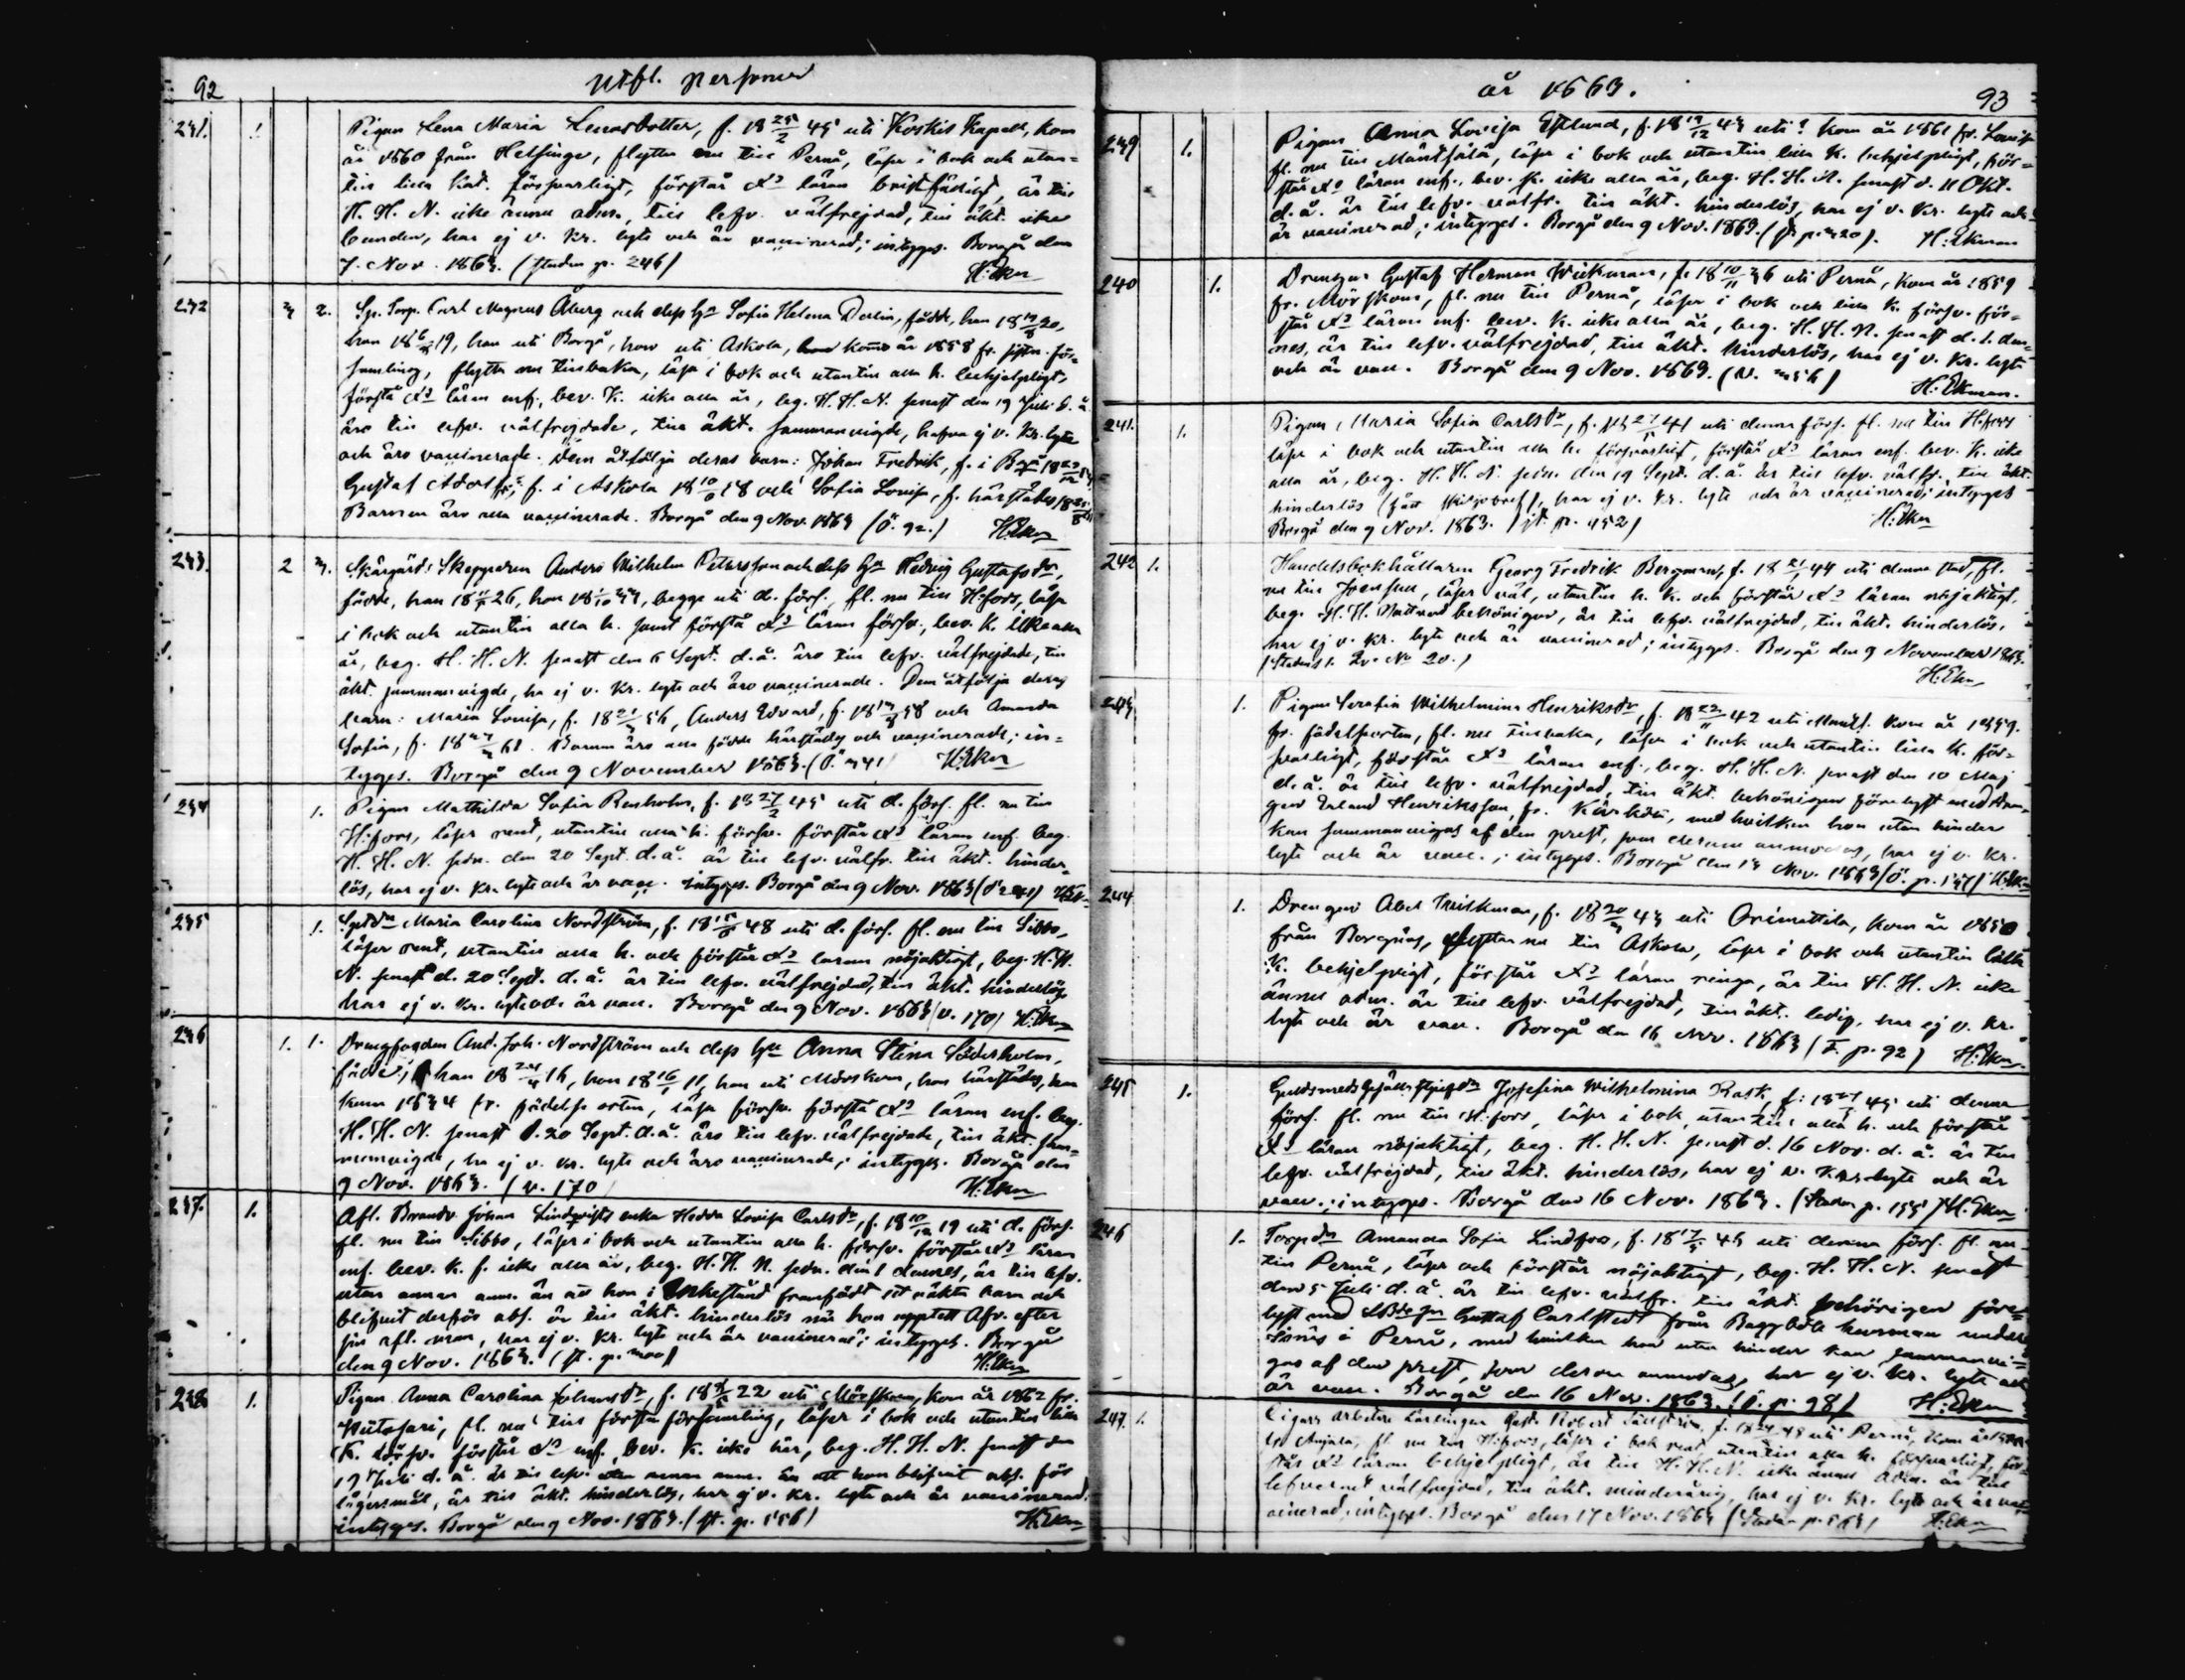 92
Utfl. personer
231. 1 Pigan Lena Maria Lenasdotter, f. 18 25/2 45 uti Koskis Kapell, kom
år 1860 från Helsinge, flyttar nu till Pernå, läser i bok och utan=
till lilla Kat. försvarligt, förstår Xs läran bristfäligt, är till
H. H. N. icke ännu adm., till lefv. välfrejdad, till äkt. icke
bunden, har ej v. kr. lyte och är vaccinerad; intygas. Borgå den
7. Nov. 1863. (staden p. 246) H: Ekm
232 3 2. Sp. Torp. Carl Magnus Åberg och dess hu Sofia Helena Dalin, födde, han 18 20,
hon 18 19, han uti Borgå, hon uti Askola, komo år 1858 fr. sistn. för=
samling, flytta nu tillbaka, läsa i bok och utantill alla h. behjelpligt,
förstå Xs läran enf., bev. K. icke alla år, beg. H. H. N. senast den 19 Juli d. å.
äro till lefv. välfrejdade, till äkt. sammanvigde, hafva ej v. kr. lyte
och äro vaccinerade. Dem åtfölja deras barn: Johan Fredrik, f. i Borgå 18
Gustaf Adolf, f. i Askola 18 58 och Sofia Lovisa, f. härstädes 18
Barnen äro alla vaccinerade. Borgå den 9 Nov. 1863 (Ö. 92.) H: Ekm
233. 2 3. Skärgårds Skepparen Anders Wilhelm Petersson och dess hu Hedvig Gustafsdr,
födde, han 18 26, hon 18 , begge uti d. förs., fl. nu till H:fors, läsa
i bok och utantill alla h. samt förstå Xs läran försv., bev. K. icke alla
år, beg. H. H. N. senast den 6 Sept. d. å. äro till lefv. välfrejdade, till
äkt. sammanvigde, ha ej v. kr. lyte och äro vaccinerade. Dem åtfölja deras
barn: Maria Lovisa, f. 18 56, Anders Edvard, f. 18 58 och Amanda
Sofia, f. 18 61. Barnen äro alla födde härstädes och vaccinerade; in=
tygas. Borgå den 9 November 1863. (Ö. 341) H: Ekm
234 1. Pigan Mathilda Sofia Renholm, f. 18 27/2 45 uti d. förs. fl. nu till
H:fors, läser rent, utantill alla h. försv. förstår Xs läran enf. beg.
H. H. N. sedn. den 20 Sept. d. å. är till lefv. välfr. till äkt. hinder=
lös, har ej v. kr. lyte och är vacc. intygas. Borgå den 9 Nov. 1863 H: Ekm
235 1. Maria Carolina Nordström, f. 18 48 uti d. förs. fl. nu till Sibbo,
läser rent, utantill alla h. och förstår Xs läran nöjaktigt, beg. H. H.
N. senast d. 20 Sept. d. å. är till lefv. välfrejdad, till äkt. hinderlös,
har ej v. kr. lyte och är vacc. Borgå den 9 Nov. 1863 (v. 170) H: Ekm
236 1. 1. And. Joh. Nordström och dess hu Anna Stina Söderholm,
födde; han 18 16, hon 18 16/ 11, han uti Mörskom, hon härstädes, han
kom 1834 fr. födelse orten, läsa försv. förstå Xs läran enf. beg.
H. H. N. senast d. 20 Sept. d. å. äro till lefv. välfrejdade, till äkt. sam=
manvigde, ha ej v. kr. lyte och äro vaccinerade; intygas. Borgå den
9 Nov. 1863. (v. 170) H: Ekm
237. 1. Afl. Johan Lindqvists enka Hedda Lovisa Carlsdr, f. 18 19 uti d. förs.
fl. nu till Sibbo, läser i bok och utantill alla h. försv. förstår Xs läran
enf. bev. K. f. icke alla år, beg. H. H. N. sedn. den 1 dennes, är till lefv.
utan annan anm. än att hon i Enkestånd framfödt ett oäkta barn och
blifvit derför abs. är till äkt. hinderlös när hon upptett Afv. efter
sin afl. man, har ej v. kr. lyte och är vaccinerad; intygas. Borgå
den 9 Nov. 1863. H: Ekm
238 1. Pigan Anna Carolina Johansdr, f. 18 22 uti Mörskom, kom år 1862 fr.
fl. nu till församling, läser i bok och utantill lilla
K. försv. förstår Xs enf. bev. K. icke här, beg. H. H. N. senast den
Juli d. å. är till lefv. utan annan anm. än att hon blifvit abs. för
lägersmål, är till äkt. hinderlös, har ej v. kr. lyte och är vaccinerad.
intygas. Borgå den 9 Nov. 1863. H: Ekm
år 1863.
93
239 1. Pigan Anna Lovisa Estlund, f. 18 19/12 43 uti ? kom år 1861 fr. Lovisa
fl. nu till Mäntsälä, läser i bok och utantill lilla K. behjelpligt, för=
står Xs läran enf., bev. K. icke alla år, beg. H. H. N. senast d. 11 Okt.
d. å. är till lefv. välfr. till äkt. hinderlös, har ej v. kr. lyte och
är vaccinerad; intygas. Borgå den 9 Nov. 1863. H: Ekman
240 1. Drengen Gustaf Herman Wickman, f. 18 10/11 36 uti Pernå, kom år 1859
fr. Mörskom, fl. nu till Pernå, läser i bok och lilla K. försv. för=
står Xs läran enf. bev. K. icke alla år, beg. H. H. N. senast d. 1. den=
nes, är till lefv. välfrejdad, till äkt. hinderlös, har ej v. kr. lyte
och är vacc. Borgå den 9 Nov. 1863. H: Ekman.
241. 1. Pigan, Maria Sofia Carlsdr, f. 18 41 uti denna förs. fl. nu till H:fors
läser i bok och utantill alla h. försvarligt, förstår Xs läran enf. bev. K. icke
alla år, beg. H. H. N. sedn. den 19 Sept. d. å. är till lefv. välfr. till äkt.
hinderlös (fått skiljobref), har ej v. kr. lyte och är vaccinerad; intygas
Borgå den 9 Nov. 1863. (st. p. 452) H: Ekm
242 1. Handelsbokhållaren Georg Fredrik Bergman, f. 18 44 uti denna stad, fl.
nu till Joensuu, läser väl, utantill h. K. och förstår Xs läran nöjaktigt,
beg. H. H. Nattvard behörigen, är till lefv. välfrejdad, till äkt. hinderlös,
har ej v. kr. lyte och är vaccinerad; intygas. Borgå den 9 November 1863.
H: Ekm
243 1. Pigan Serafia Wilhelmina Henriksdr, f. 18 22/11 42 uti kom år 1859.
fr. födelseorten, fl. nu tillbaka, läser i bok och utantill lilla K. för=
svarligt, förstår Xs läran enf., beg. H. H. N. senast den 10 Maj
d. å. är till lefv. välfrejdad, till äkt. behörigen förelyst med dren=
gen Erland Henriksson, fr. , med hvilken hon utan hinder
kan sammanvigas af den prest, som derom anmodas, har ej v. kr.
lyte och är vacc.; intygas. Borgå den 13 Nov. 1863 H: Ekm
244 1. Drengen Abel Wickman, f. 18 43 uti Orimattila, kom år 1850
från Borgnäs, flyttar nu till Askola, läser i bok och utantill lilla
K. behjelpligt, förstår Xs läran ringa, är till H. H. N. icke
ännu adm. är till lefv. välfrejdad, till äkt. ledig, har ej v. kr.
lyte och är vacc. Borgå den 16 Nov. 1863 (F. p. 92) H: Ekm.
245 1. Josefina Wilhelmina Rask, f. 18 45 uti denna
förs. fl. nu till H:fors, läser i bok, utantill alla h. och förstår
Xs läran nöjaktigt, beg. H. H. N. senast d. 16 Nov. d. å. är till
lefv. välfrejdad, till äkt. hinderlös, har ej v. kr. lyte och är
vacc.; intygas. Borgå den 16 Nov. 1863. H: Ekm
246 1. Torpdn Amanda Sofia Lindfors, f. 18 43 uti denna förs. fl. nu
till Pernå, läser och förstår nöjaktigt, beg. H. H. N. senast
den 5 Juli d. å. är till lefv. välfr. till äkt. behörigen före=
lyst med Gustaf Carlstedt från Baggböle hemman under
i Pernå, med hvilken hon utan hinder kan sammanvi=
gas af den prest, som derom anmodas, har ej v. kr. lyte och
är vacc. Borgå den 16 Nov. 1863. (Ö. p. 98) H: Ekm
247. 1. Cigarr arbetare Lärlingen Robert , f. 18 48 uti Pernå, kom år
fr. Anjala, fl. nu till H:fors, läser i bok rent, utantill alla h. försvarligt, för=
står Xs läran behjelpligt, är till H. H. N. icke ännu adm. är till
lefvernet välfrejdad, till äkt. minderårig, har ej v. kr. lyte och är vac=
cinerad, intygas. Borgå den 17 Nov. 1863 H: Ekm